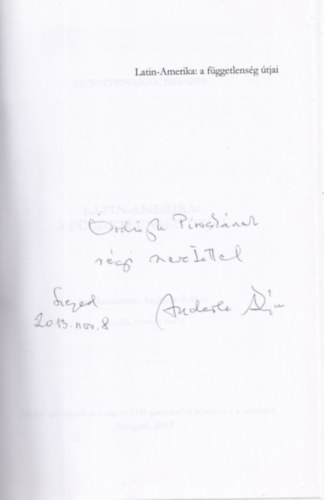 Latin-Amerika: a függetlenség útjai
Ördögh Piroskának
régi szeretettel
Szeged
2013. nov. 8
Anderle Ádám